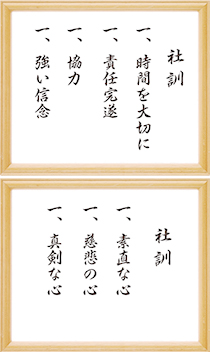 社訓
一、時間を大切に
一、責任完遂
一、協力
一、強い信念
社訓
一、素直な心
一、慈悲の心
一、真剣な心